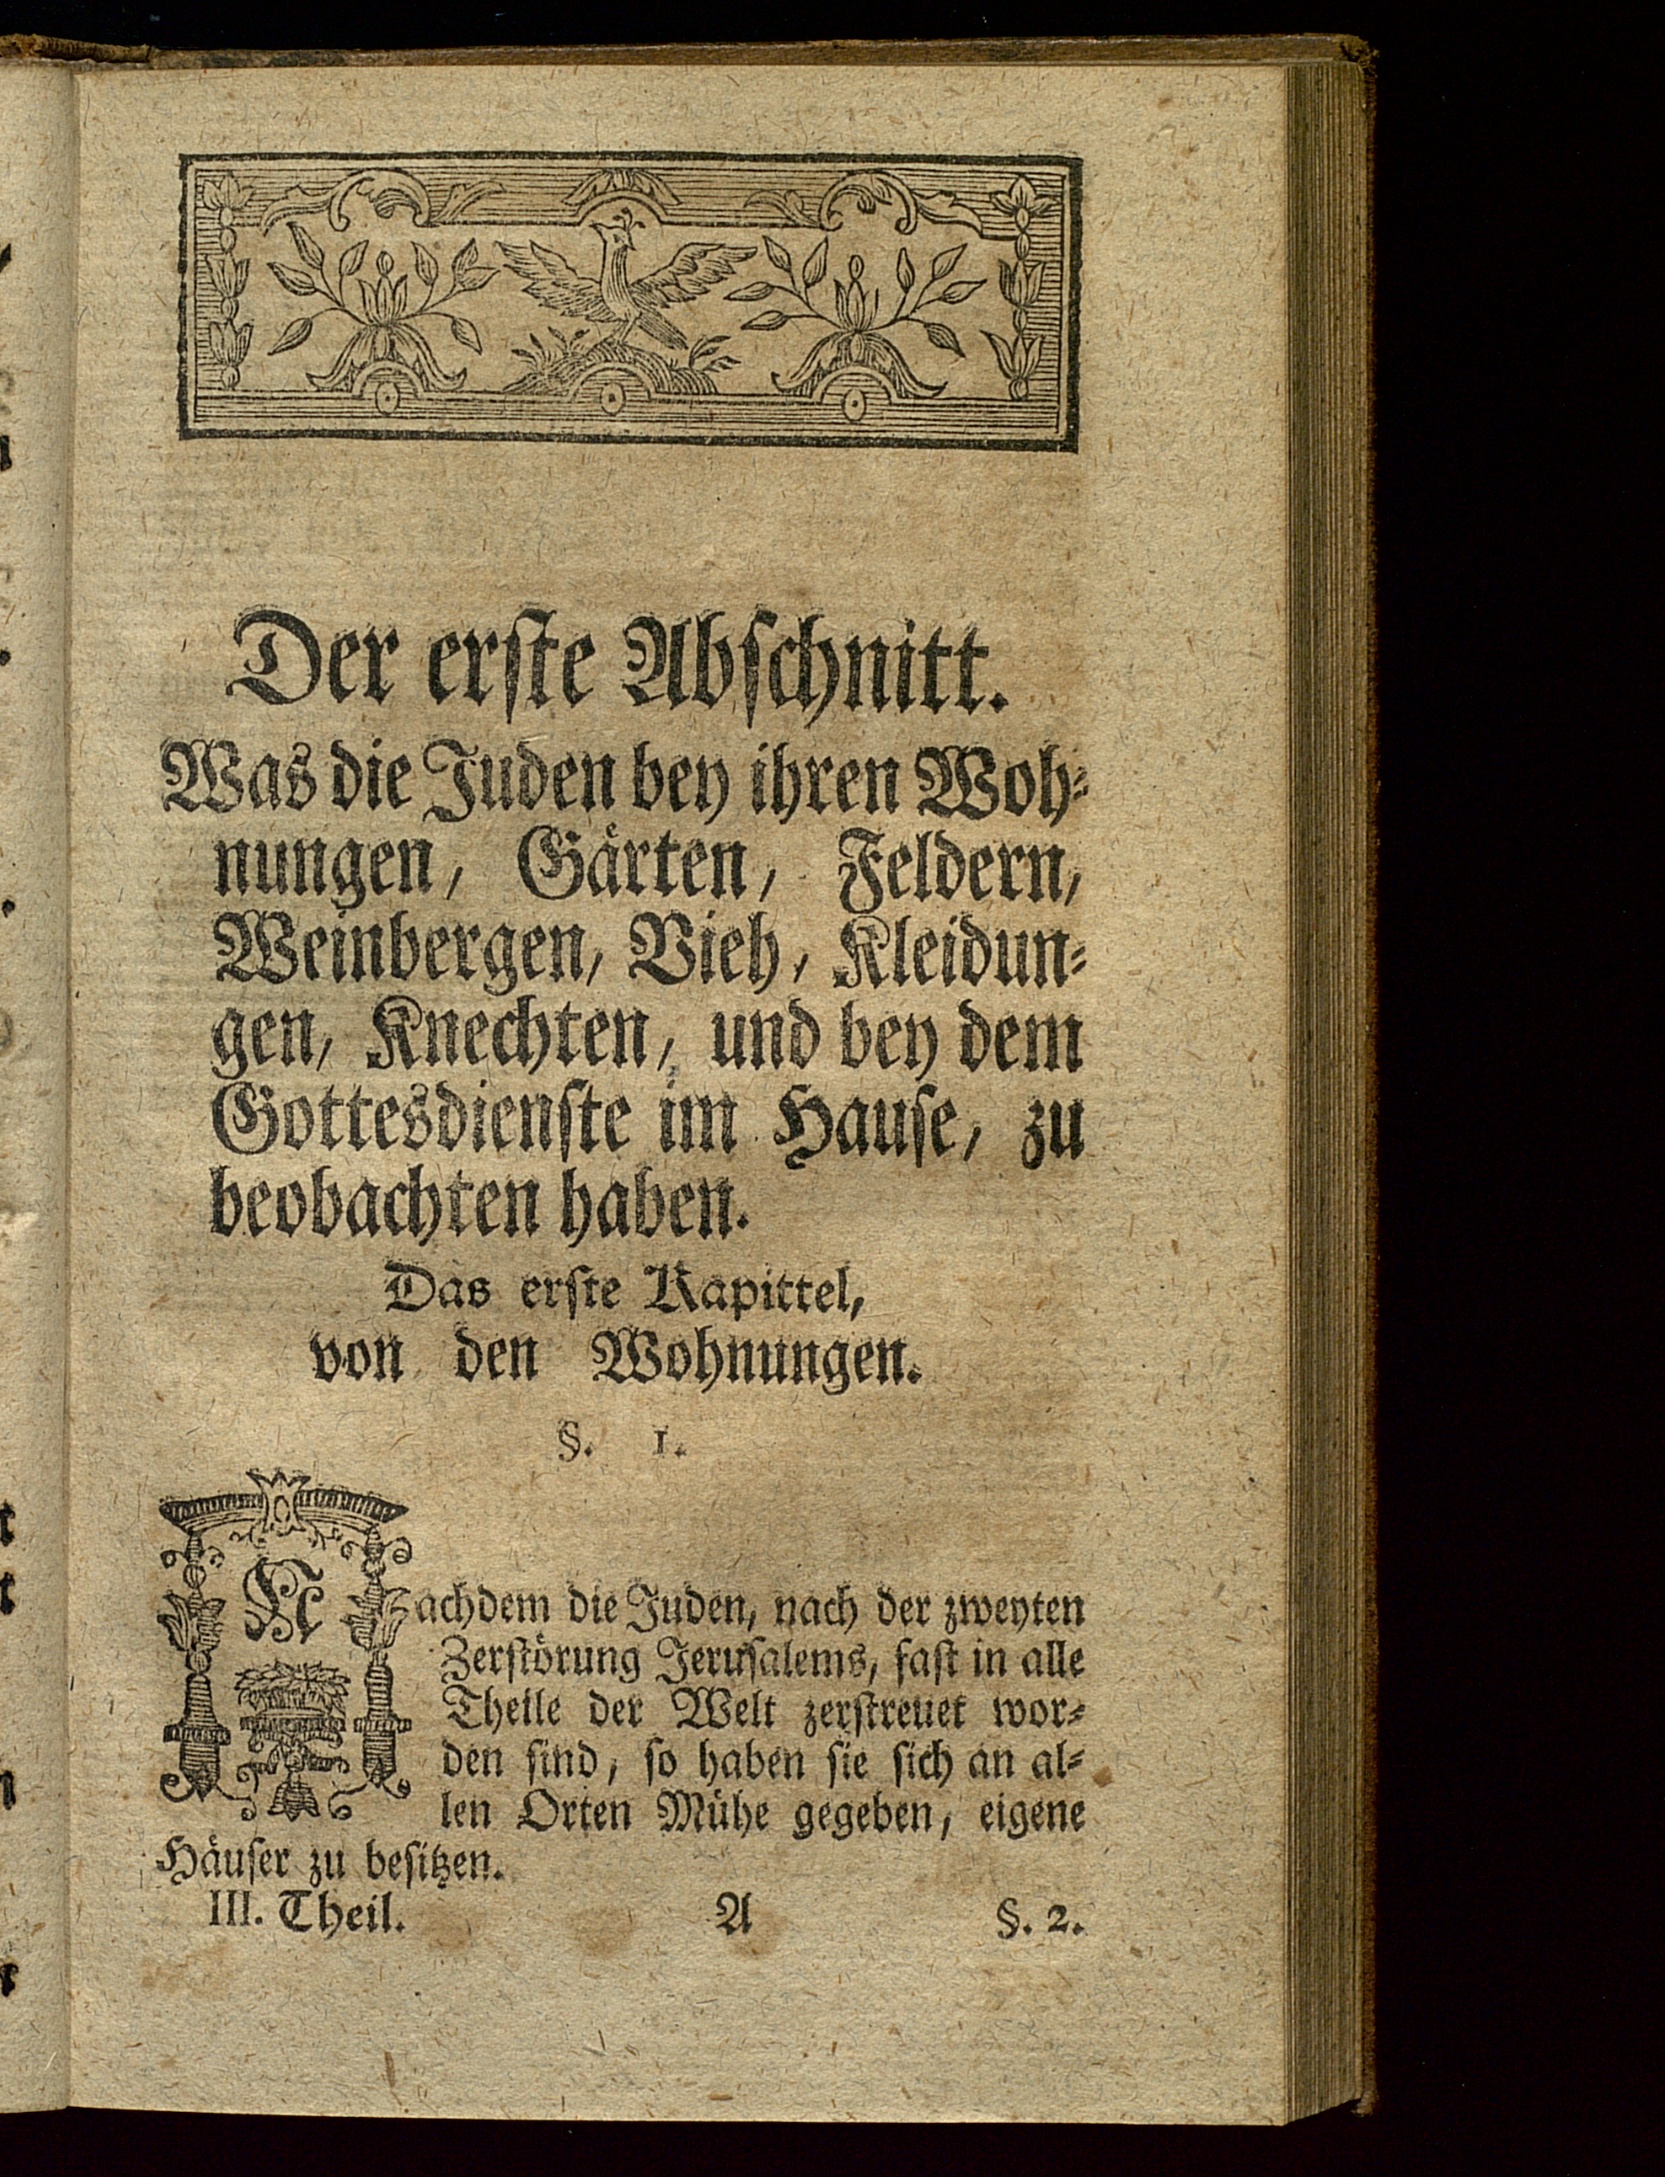 Der erste Abschnitt.
Was die Juden bey ihren Woh-
nungen, Gärten, Feldern,
Weinbergen, Vieh, Kleidun-
gen, Knechten, und bey dem
Gottesdienste im Hause, zu
beobachten haben.
Das erste Kapittel,
von den Wohnungen.
§. 1.
Nachdem die Juden, nach der zweyten
Zerstörung Jerusalems, fast in alle
Theile der Welt zerstreuet wor-
den sind, so haben sie sich an al-
len Orten Mühe gegeben, eigene
Häuser zu besitzen.
III. Theil. A §. 2.